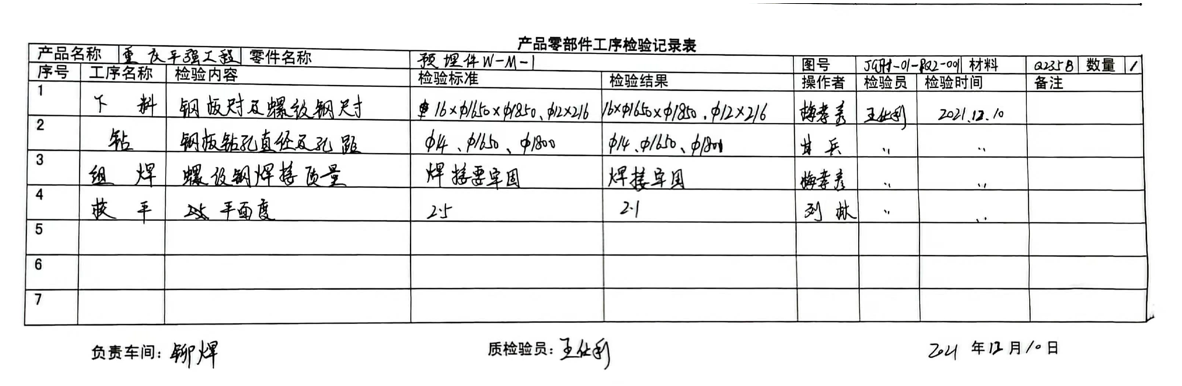 产品零部件工序检验记录表
产品名称 重庆平强工程 零件名称 预埋件W-M-1 图号 材料 Q235B 数量 1
序号 工序名称 检验内容 检验标准 检验结果 操作者 检验员 检验时间 备注
1 下料 钢板尺寸及螺纹钢尺寸 16×φ1650×φ1850、φ12×216 16×φ1650×φ1850、φ12×216 王仕利 2021.12.10
2 钻 钢板钻孔直径及孔距 φ14、φ1650、φ1800 φ14、φ1650、φ1800 兵 〃 〃
3 组焊 螺纹钢焊接质量 焊接要牢固 焊接牢固 〃 〃
4 校平 平面度 2.5 2.1 〃 〃
5
6
7
负责车间：铆焊 质检验员：王仕利 2021年12月10日